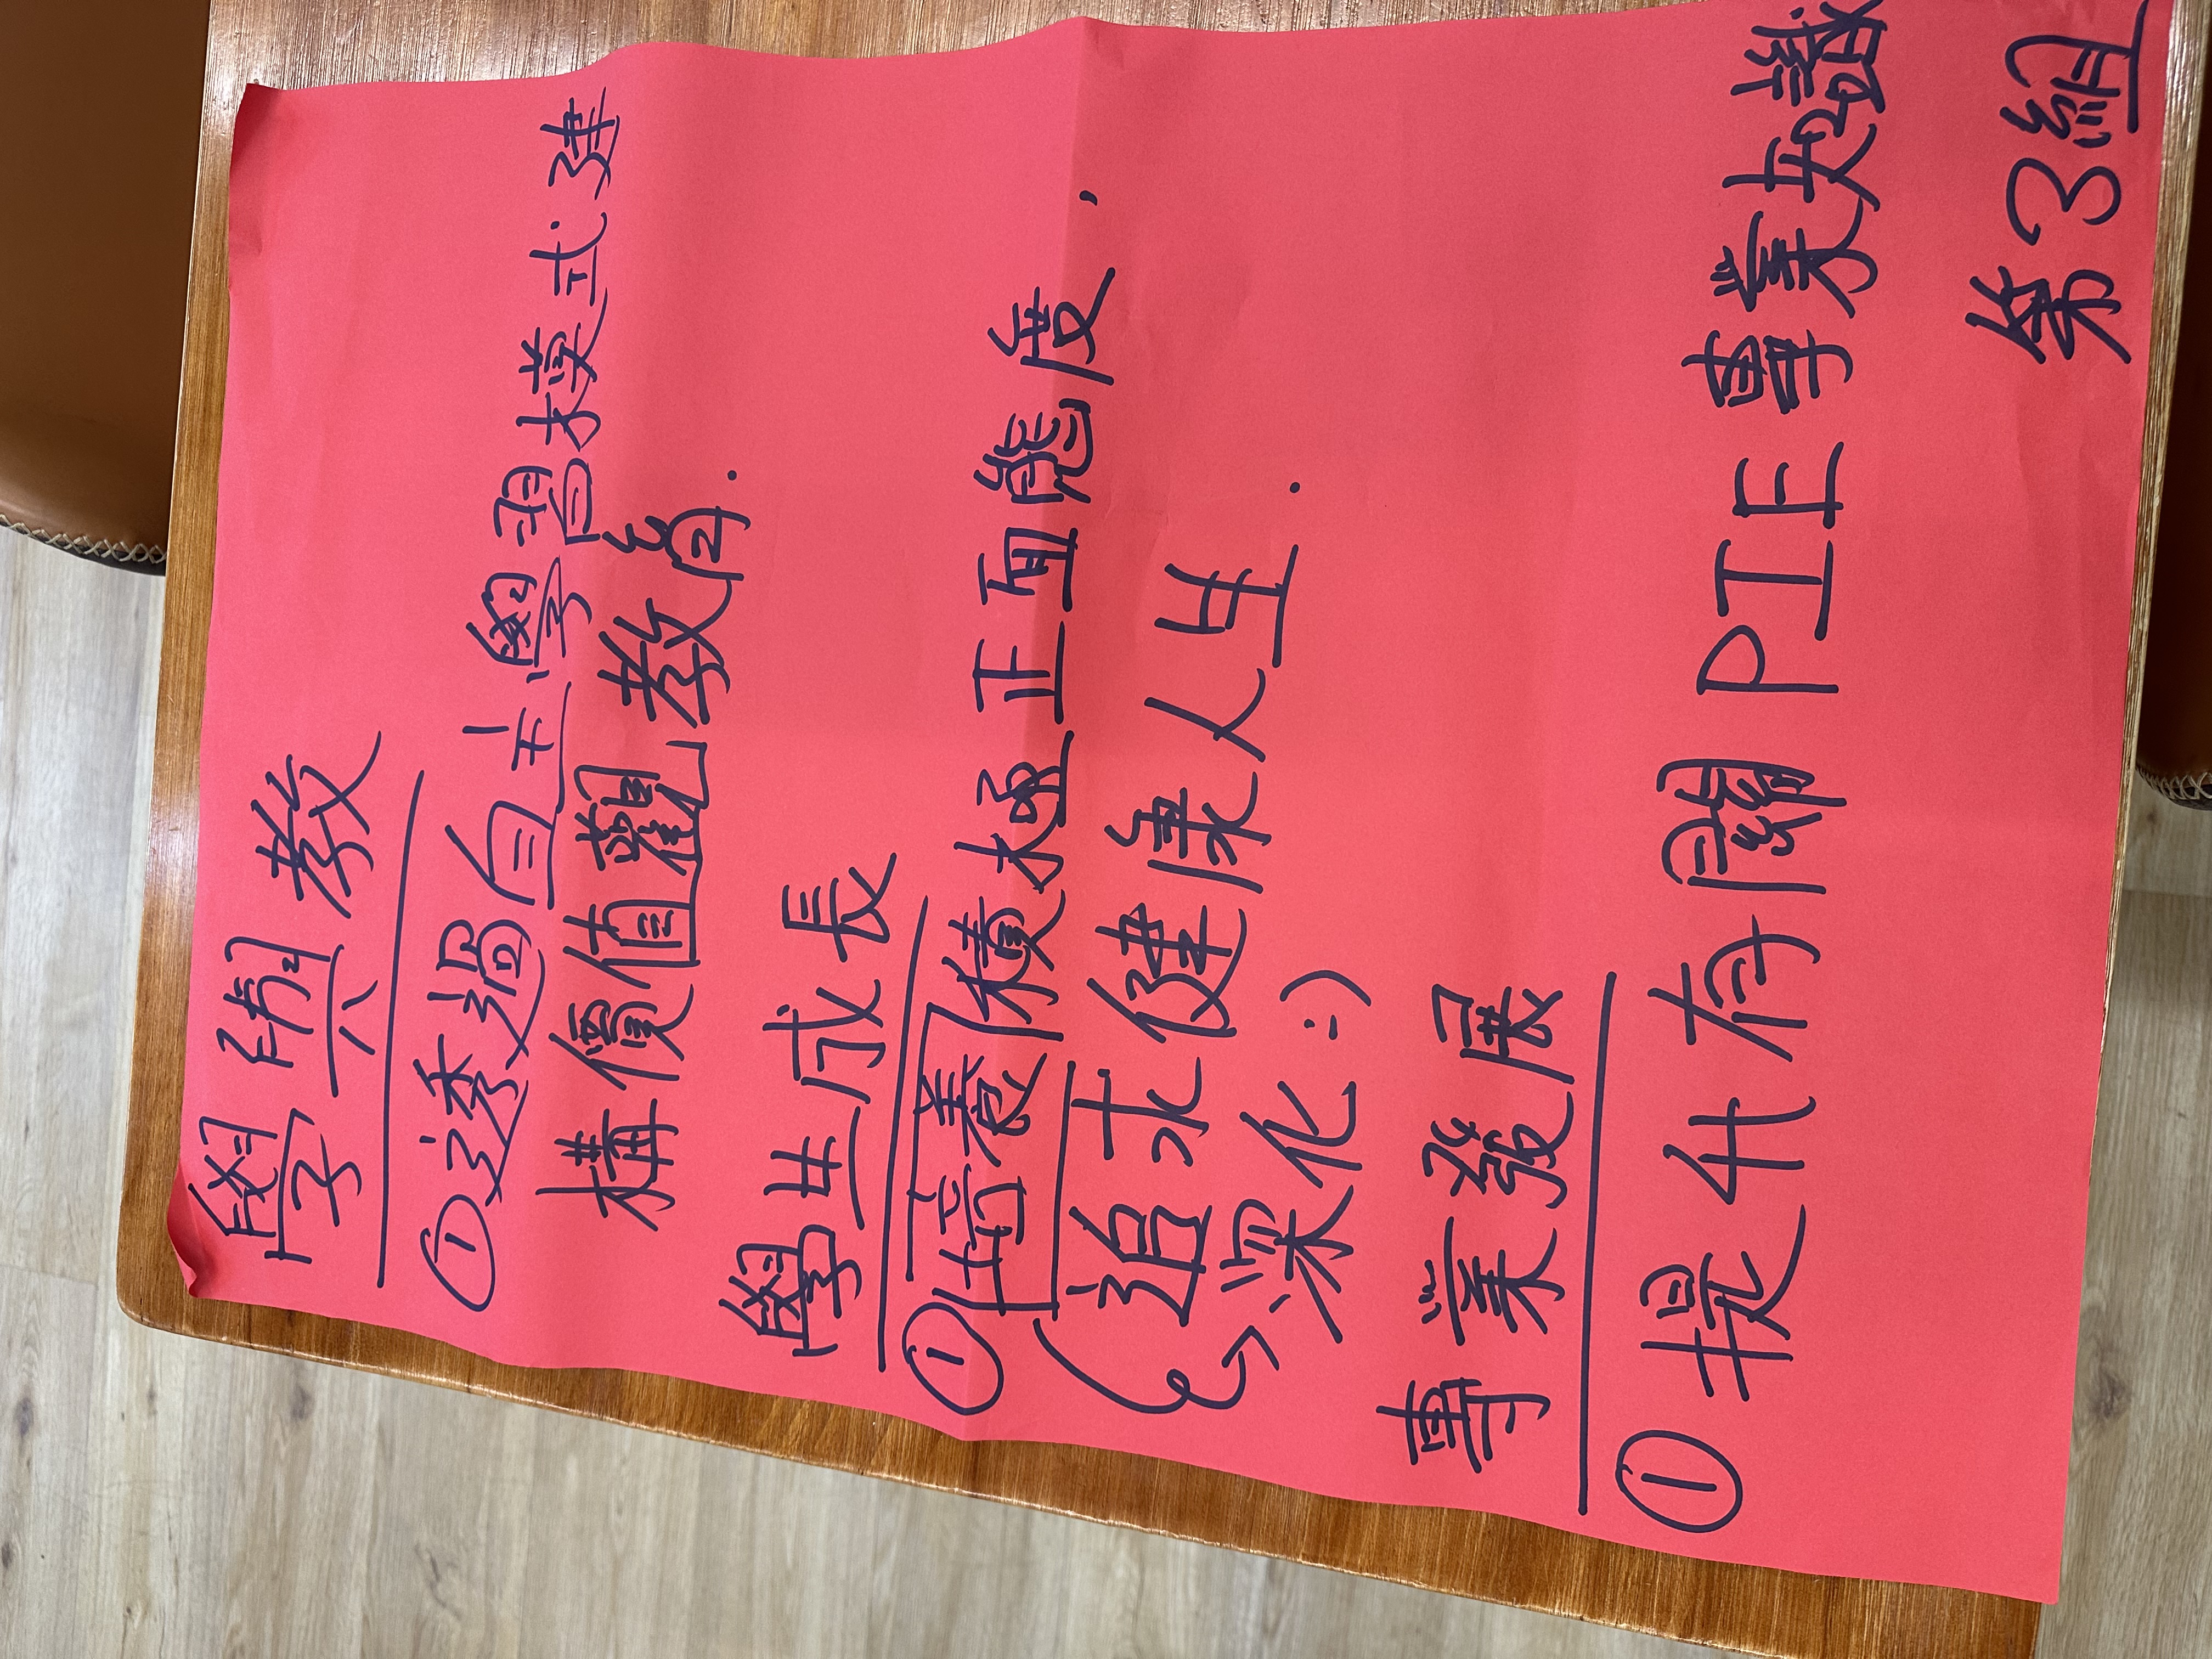 學與教
① 透過自主學習模式建
構價值觀教育.
學生成長
① 培養積極正面態度,
追求健康人生.
深化 :)
專業發展
① 提升有關PIE專業知識
第3組